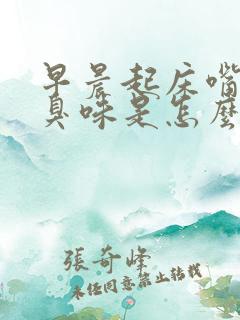 早晨起床嘴
臭味是怎麼
張奇峰
未任同意禁止轉載